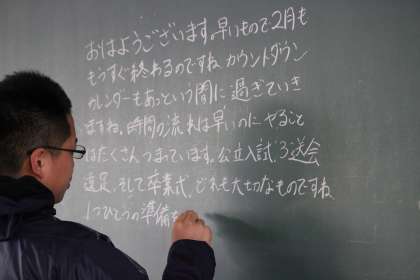 おはようございます。早いもので2月も
もうすぐ終わるのですね。カウントダウン
カレンダーもあっという間に過ぎていき
ますね。時間の流れは早いのにやること
はたくさんつまっています。公立入試、3送会
遠足、そして卒業式、どれも大切なものですね。
1つひとつの準備を